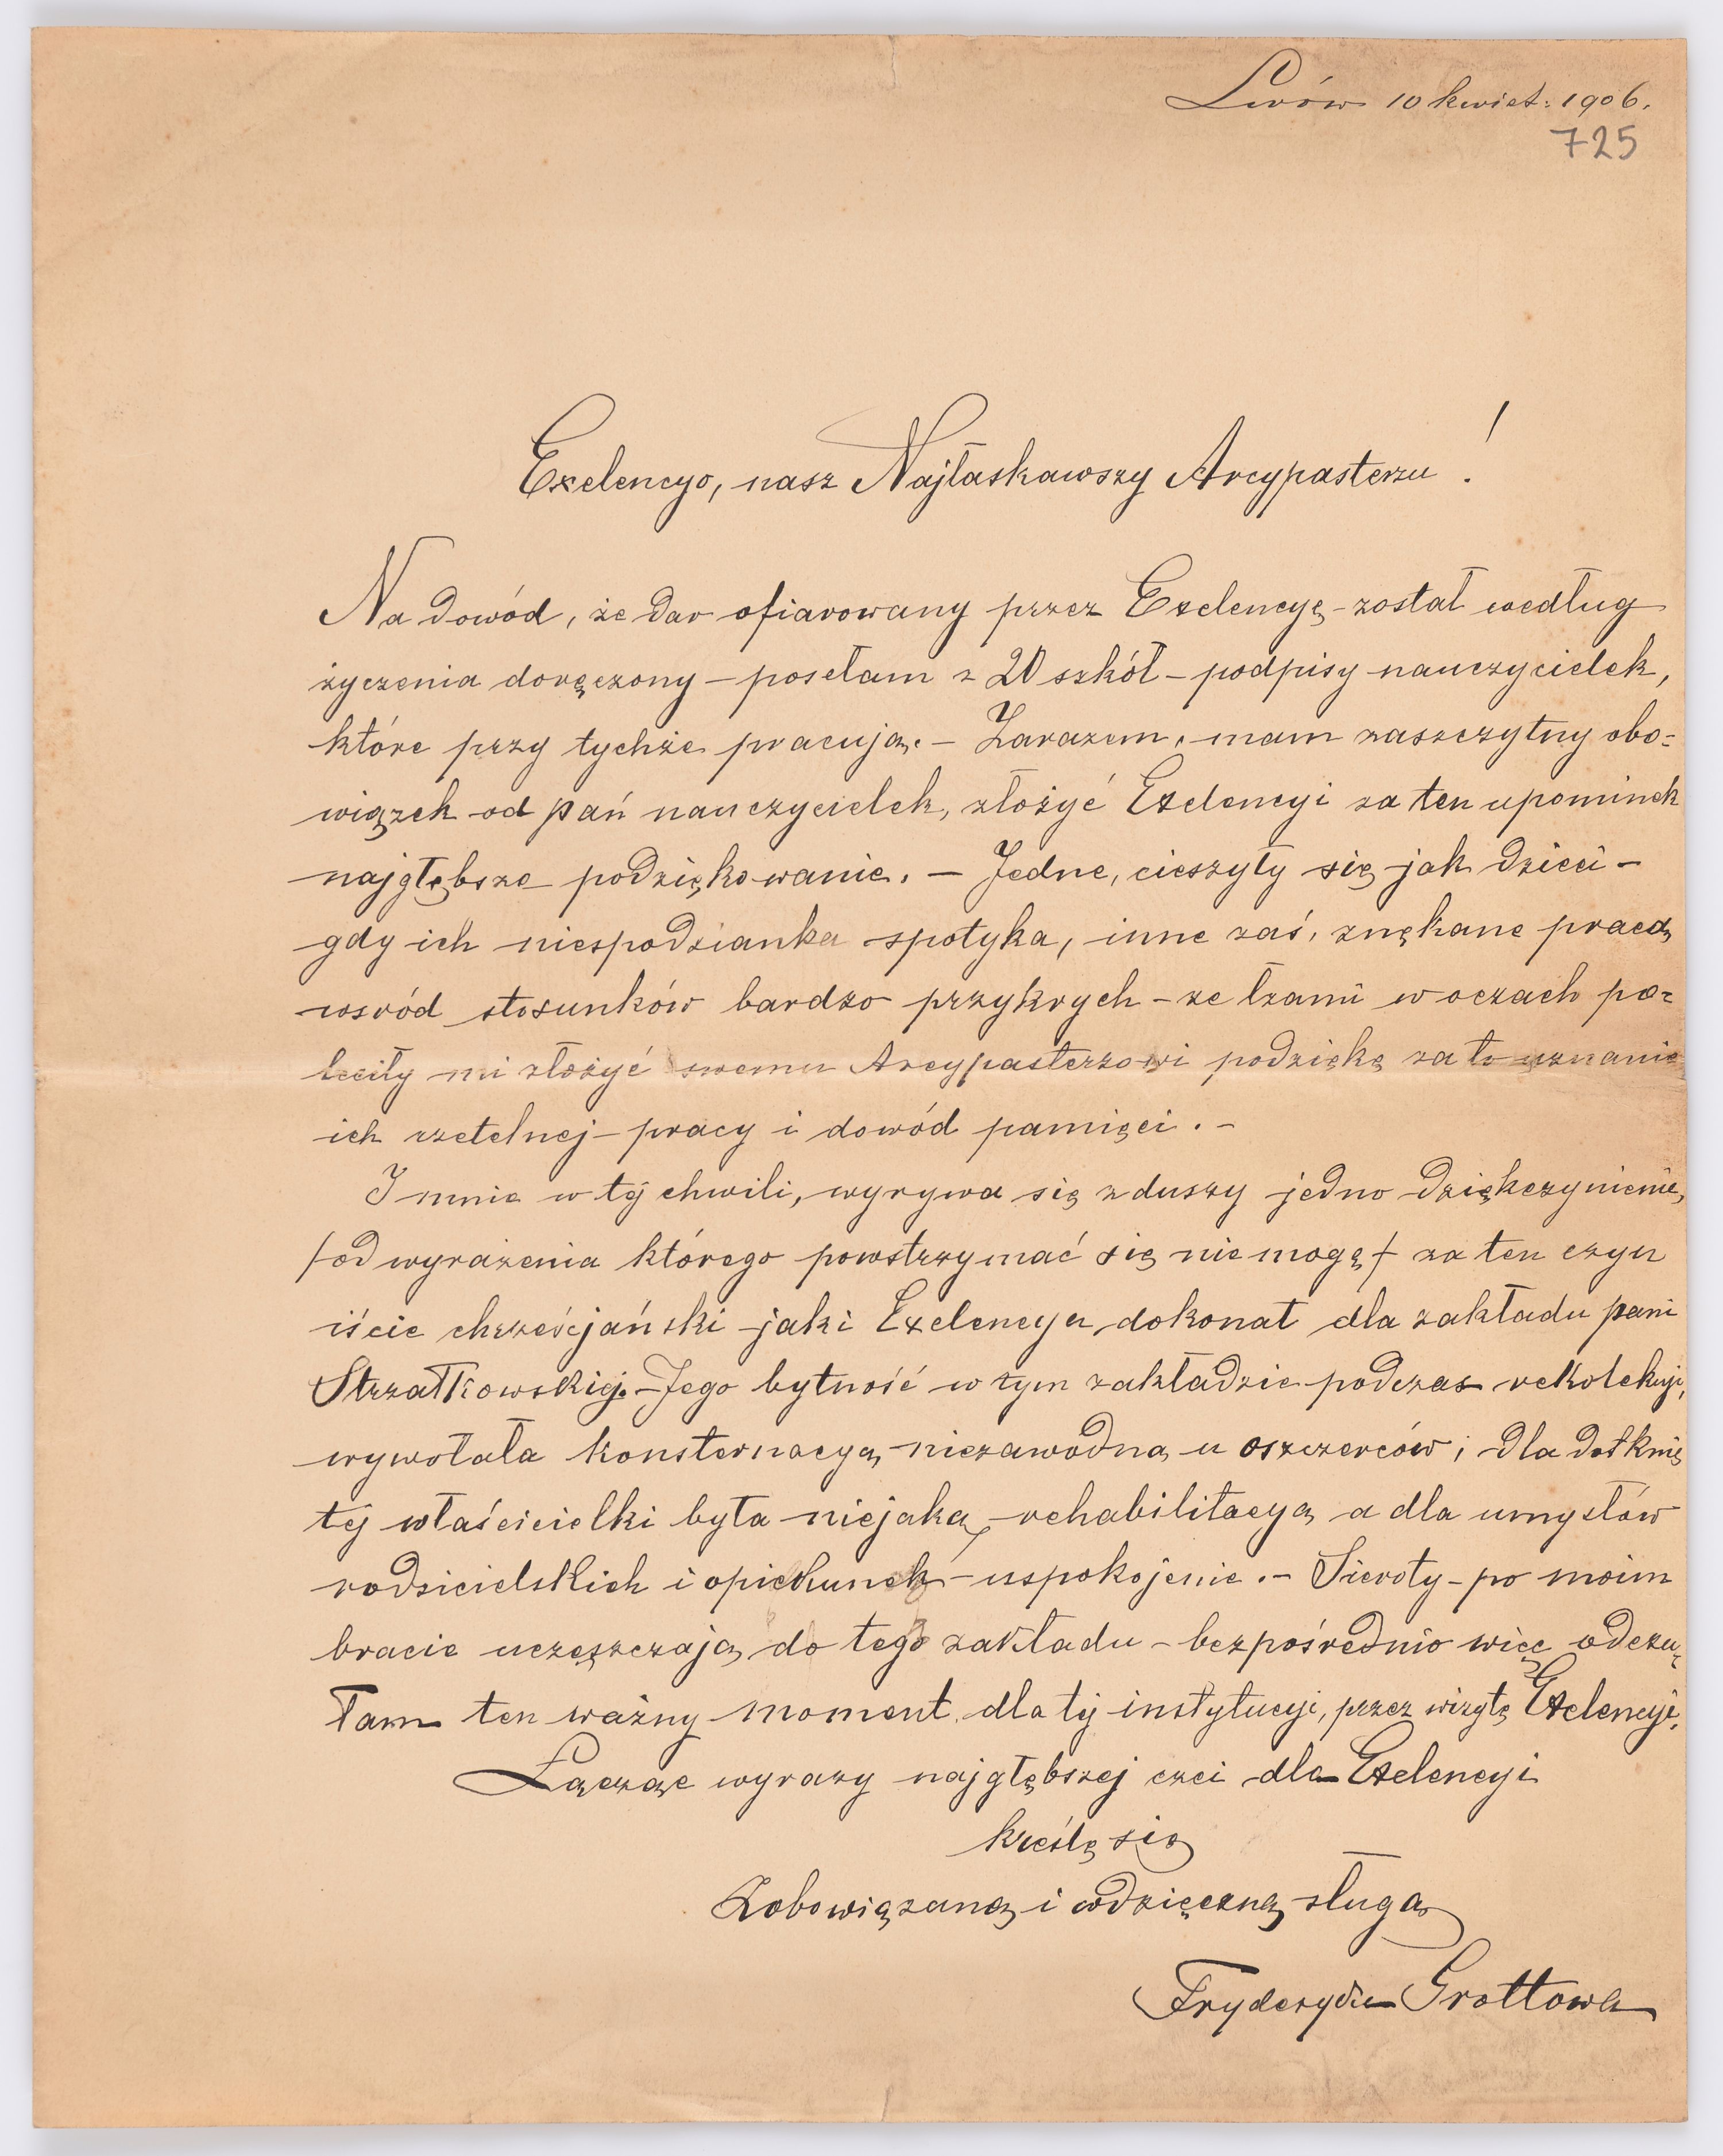 Lwów 10 kwiet: 1906.
725
Exelencyo, nasz Najłaskawszy Arcypasterzu!
Na dowód, że dar ofiarowany przez Exelencyę - został według
życzenia doręczony - posełam z 20 szkół - podpisy nauczycielek,
które przy tychże pracują. - Zarazem, mam zaszczytny obo=
wiązek od pań nauczycielek, złożyć Exelencyi za ten upominek
najgłębsze podziękowanie. - Jedne, cieszyły się jak dzieci -
gdy ich niespodzianka spotyka, inne zaś, znękane pracą
wsród stosunków bardzo przykrych - ze łzami w oczach po=
leciły mi złożyć swemu Arcypasterzowi podziękę za to uznanie
ich rzetelnej pracy i dowód pamięci. -
I mnie w téj chwili, wyrywa się z duszy jedno dziękczynienie,
/od wyrażenia którego powstrzymać się nie mogę/ za ten czyn
iście chrześcjański jaki Exelencya dokonał dla zakładu pani
Strzałkowskiej. - Jego bytność w tym zakładzie podczas rekolekcyi,
wywołała konsternacyą niezawodną u oszczerców; dla dotknię
téj właścicielki była niejaką rehabilitacyą a dla umysłów
rodzicielskich i opiekunek - uspokojenie. - Sieroty - po moim
bracie uczęszczają do tego zakładu - bezpośrednio więc odczu=
łam ten ważny moment dla téj instytucyi, przez wizytę Exelencyi.
Łącząc wyrazy najgłębszej czci dla Exelencyi
kreślę się
Zobowiązaną i wdzięczną sługą
Fryderyka Grottowa